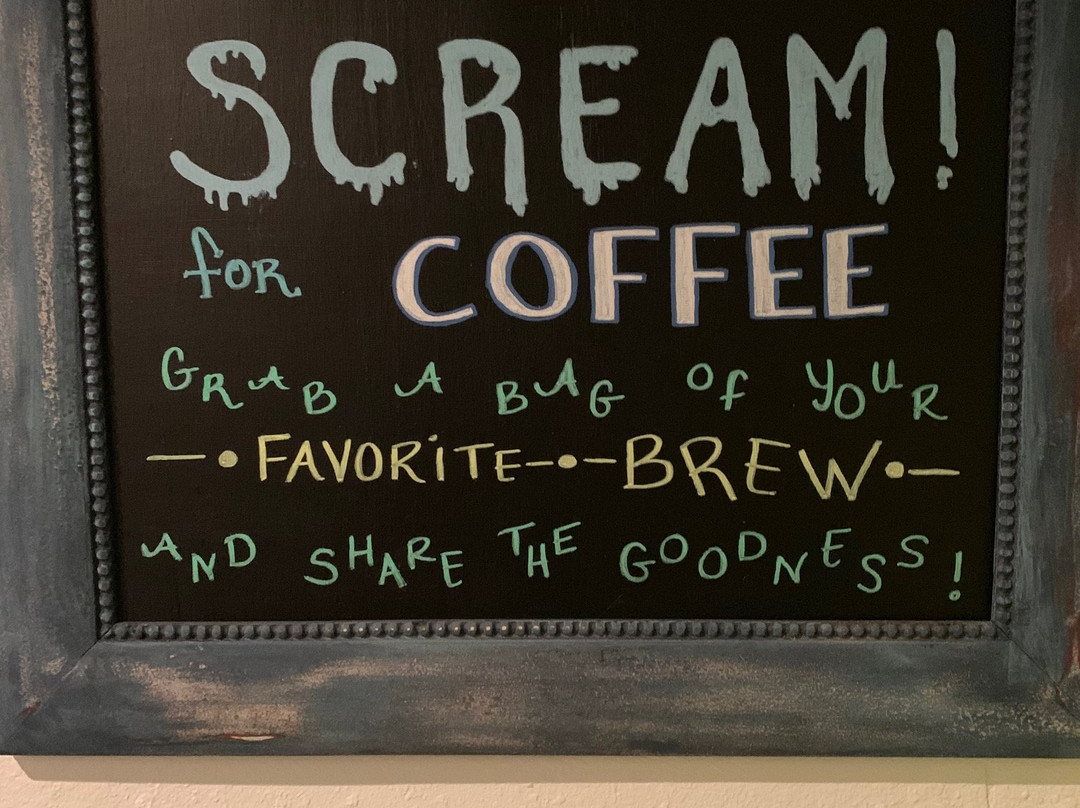 SCREAM!
for COFFEE
GRAB A BAG OF YOUR
FAVORITE BREW
AND SHARE THE GOODNESS!